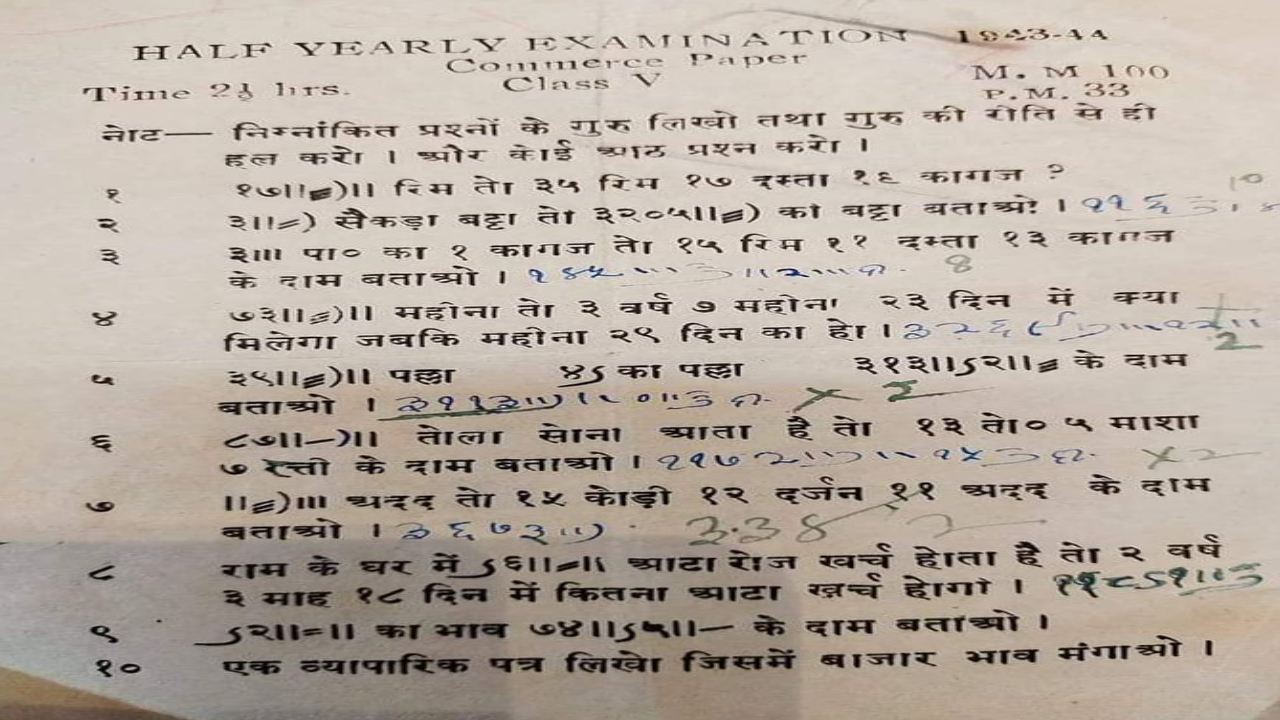 HALF YEARLY EXAMINATION 1943-44
Commerce Paper
Time 2½ hrs. Class V M. M 100
P.M. 33
नोट— निम्नांकित प्रश्नों के गुरु लिखो तथा गुरु की रीति से ही
हल करो । और कोई आठ प्रश्न करो ।
१ १७॥।≡)॥ रिम तो ३५ रिम १७ दस्ता १६ कागज ?
10
२ ३॥।=) सैकड़ा बट्टा तो ३२०५॥≡) का बट्टा बताओ ।
३ ३॥। पा० का १ कागज तो १५ रिम ११ दस्ता १३ कागज
के दाम बताओ । 8
४ ७३॥≡)॥ महीना तो ३ वर्ष ७ महीना २३ दिन में क्या
मिलेगा जबकि महीना २९ दिन का हो ।
५ ३९॥≡)॥ पल्ला ४ऽ का पल्ला ३१३॥ऽ२॥≡ के दाम
बताओ । × 2
६ ८७॥-)॥ तोला सोना आता है तो १३ तो० ५ माशा
७ रत्ती के दाम बताओ । ×2
७ ॥≡)॥। अदद तो १५ कोड़ी १२ दर्जन ११ अदद के दाम
बताओ ।
८ राम के घर में ऽ६॥=॥ आटा रोज खर्च होता है तो २ वर्ष
३ माह १८ दिन में कितना आटा खर्च होगा ।
९ ऽ२॥=॥ का भाव ७४॥ऽ५॥- के दाम बताओ ।
१० एक व्यापारिक पत्र लिखो जिसमें बाजार भाव मंगाओ ।